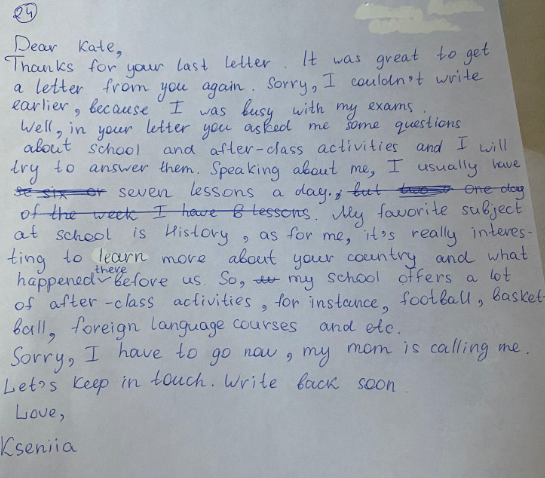 24
Dear Kate,
Thanks for your last letter. It was great to get
a letter from you again. Sorry, I couldn't write
earlier, because I was busy with my exams.
Well, in your letter you asked me some questions
about school and after-class activities and I will
try to answer them. Speaking about me, I usually have
six or seven lessons a day., but one day
of the week I have 8 lessons. My favorite subject
at school is History, as for me, it's really interes-
ting to learn more about your country and what
happened there before us. So, my school offers a lot
of after-class activities, for instance, football, basket-
ball, foreign language courses and etc.
Sorry, I have to go now, my mom is calling me.
Let's keep in touch. Write back soon.
Love,
Kseniia